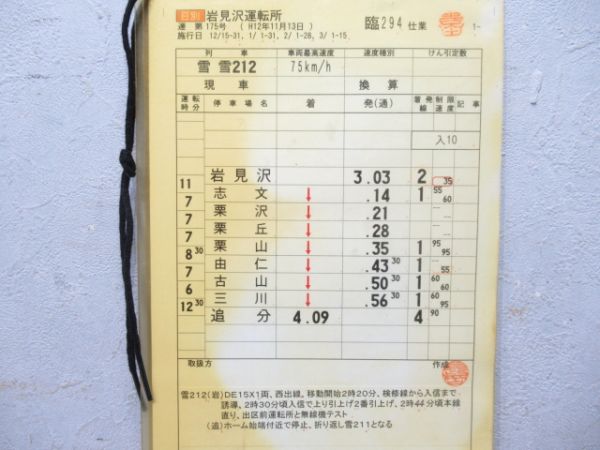 日別 岩見沢運転所
運 第175号 (H12年11月13日) 臨294 仕業 1~
施行日 12/15-31, 1/1-31, 2/1-28, 3/1-15
列車 車両最高速度 速度種別 けん引定数
雪 雪212 75km/h
現車 換算
運転時分 停車場名 着 発(通) 着発線 制限速度 記事
入10
岩見沢 3.03 2 35
11
志文 ↓ .14 1 55 60
7
栗沢 ↓ .21 … …
7
栗丘 ↓ .28 … …
7
栗山 ↓ .35 1 95 95
8 30
由仁 ↓ .43 30 1 … 55
7
古山 ↓ .50 30 1 60 60
6
三川 ↓ .56 30 1 60 60
12 30
追分 4.09 4 90
取扱方 作成
雪212(岩)DE15X1両、西出線。移動開始2時20分、検修線から入信まで
誘導、2時30分頃入信で上り引上げ2番引上げ、2時44分頃本線
直り、出区前運転所と無線機テスト
(追)ホーム始端付近で停止、折り返し雪211となる